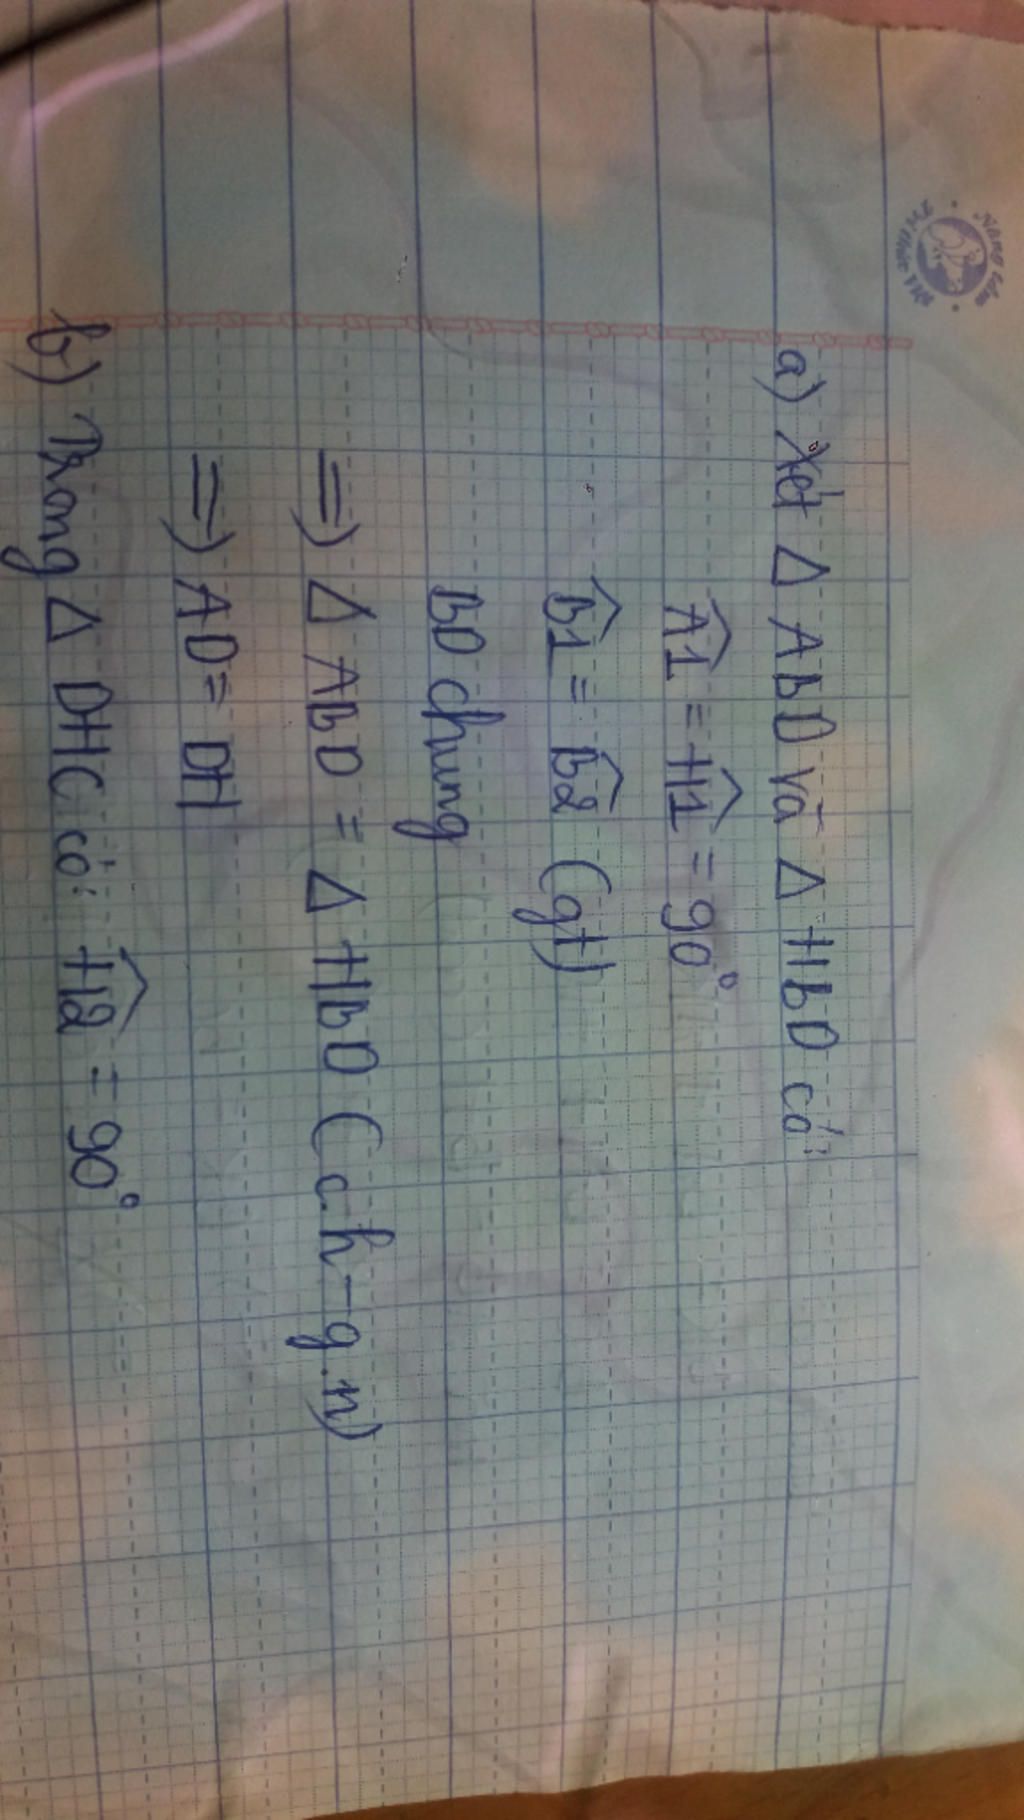 a) Xét Δ ABD và Δ HBD có:
Â1 = Ĥ1 = 90°
B̂1 = B̂2 (gt)
BD chung
=> Δ ABD = Δ HBD (c.h-g.n)
=> AD = DH
b) Trong Δ DHC có: Ĥ2 = 90°